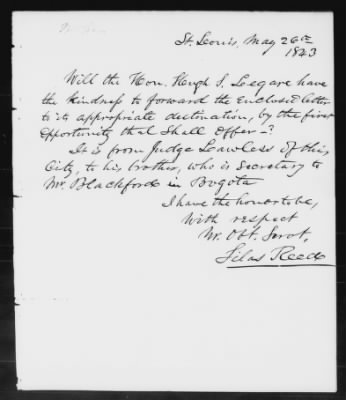 St. Louis, May 26th
1843
Will the Hon. Hugh S. Legare have
the kindness to forward the enclosed letter
to its appropriate destination, by the first
opportunity that shall offer—?
It is from Judge Lawless of this
City, to his brother, who is Secretary to
Mr. Blackford in Bogota
I have the honor to be,
With respect
Yr. Obt. Servt,
Silas Reed